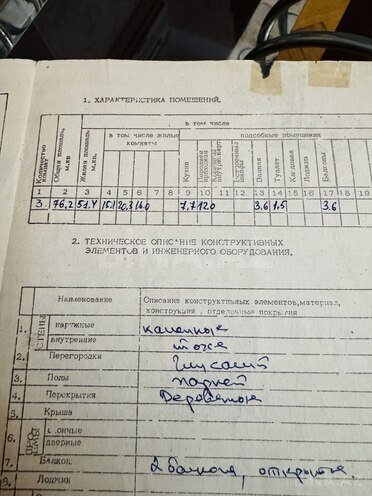 1. ХАРАКТЕРИСТИКА ПОМЕЩЕНИЙ.
Количество комнат
Общая площадь, м.кв
Жилая площадь, м.кв.
в том числе
в том числе жилые комнаты
подсобные помещения
Кухня
Коридоры
Встроенные шкафы
Ванная
Туалет
Кладовая
Лоджии
Балконы
1 2 3 4 5 6 7 8 9 10 11 12 13 14 15 16 17 18 19
3. 76,2 51.4 15.1 20.3 16.0 7.7 12.0 3.6 1.5 3.6
2. ТЕХНИЧЕСКОЕ ОПИСАНИЕ КОНСТРУКТИВНЫХ
ЭЛЕМЕНТОВ И ИНЖЕНЕРНОГО ОБОРУДОВАНИЯ.
Наименование
Описание конструктивных элементов, материал,
конструкция, отделочные покрытия
1. СТЕНЫ наружные каменные
внутренние тоже
2. Перегородки
3. Полы паркет
4. Перекрытия деревянные
5. Крыша
6. оконные
дверные
7. Балкон 2 балкона, открытые.
8. Лоджии